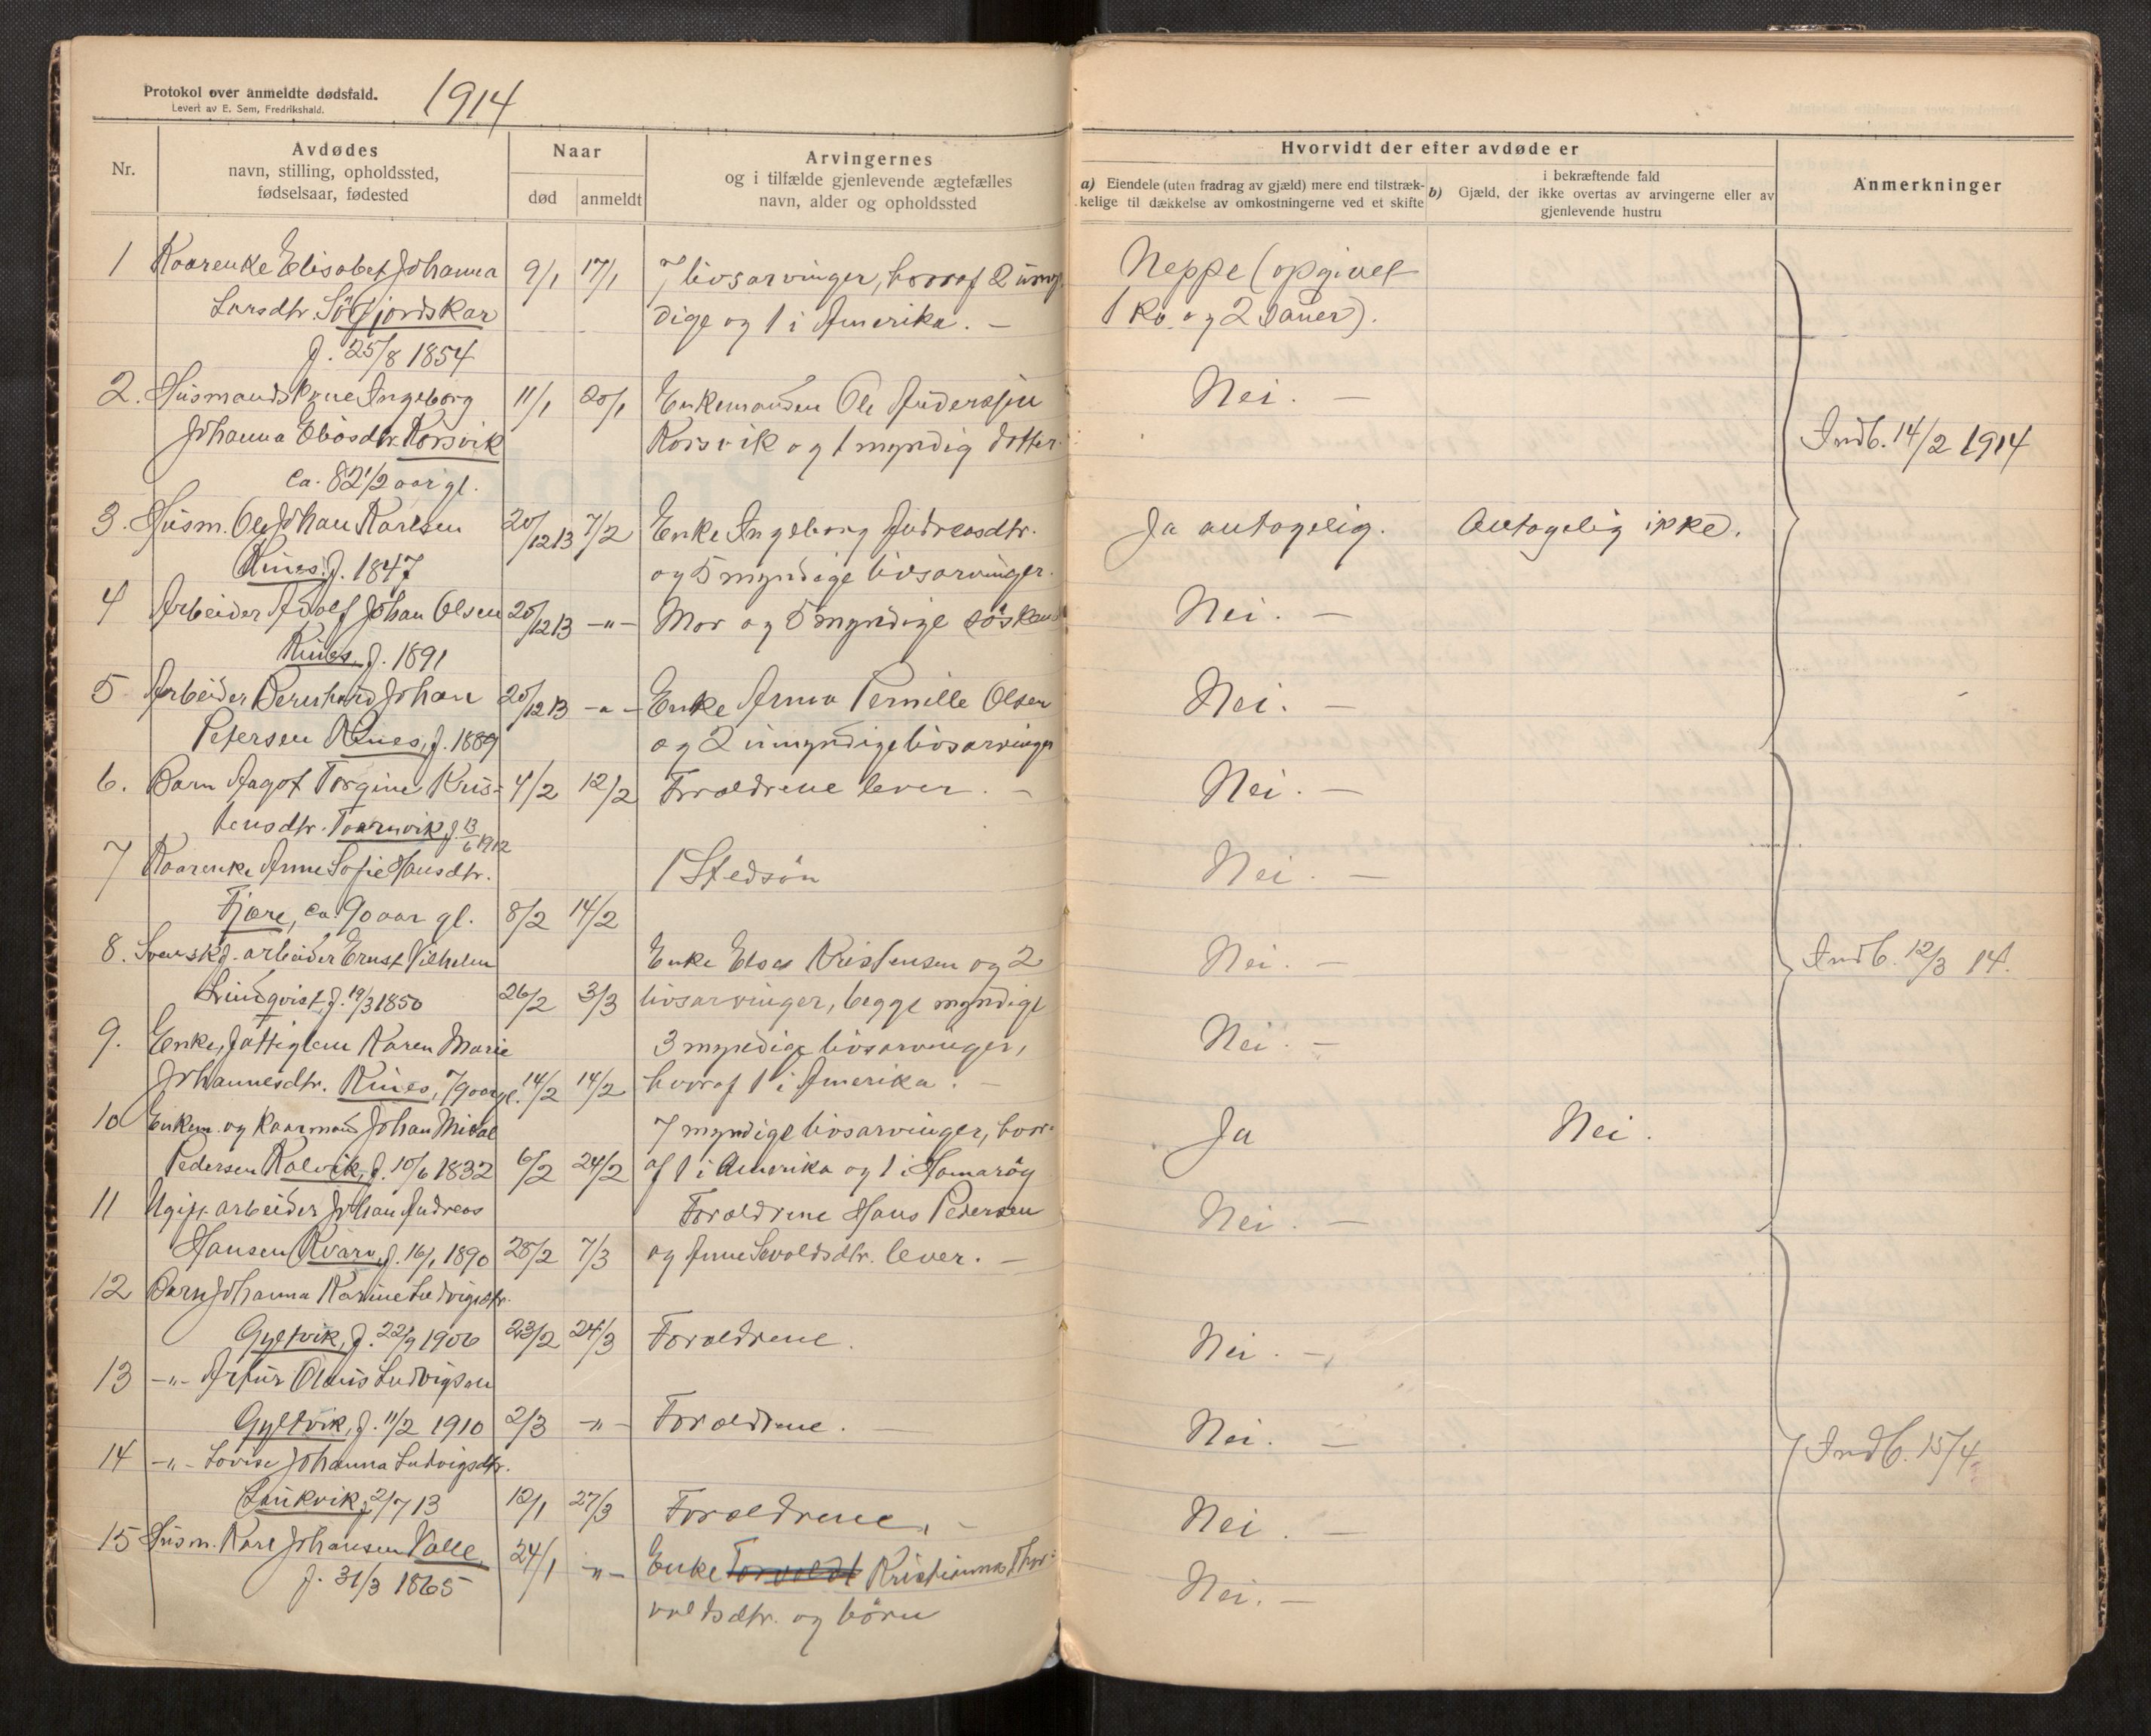 Protokol over anmeldte dødsfald.
Levert av E. Sem, Fredrikshald.
1914
Nr.
Avdødes
navn, stilling, opholdssted,
fødselsaar, fødested
Naar
død
anmeldt
Arvingernes
og i tilfælde gjenlevende ægtefælles
navn, alder og opholdssted
Hvorvidt der efter avdøde er
a) Eiendele (uten fradrag av gjæld) mere end tilstræk-
kelige til dækkelse av omkostningerne ved et skifte
i bekræftende fald
b) Gjæld, der ikke overtas av arvingerne eller av
gjenlevende hustru
Anmerkninger
1 Kaarenke Elisabet Johanna 9/1 17/1 7 livsarvinger, hvoraf 2 umyn Neppe (opgivet
Larsdtr. Sørfjordskar dige og 1 i Amerika. — 1 ko og 2 sauer).
f. 25/8 1854
2. Husmandskone Ingeborg 11/1 20/1 Enkemanden Ole Andersen Nei. —
Johanna Eliasdtr. Korsvik Korsvik og 1 myndig datter. Indb. 14/2 1914
ca. 82 1/2 aar gl.
3. Husm. Ole Johan Karlsen 20/12 13 7/2 Enke Ingeborg Andreasdtr. Ja antagelig. Antagelig ikke.
Rines. f. 1847 og 5 myndige livsarvinger.
4 Arbeider Adolf Johan Olsen 20/12 13 -"- Mor og 5 myndige søsken Nei. —
Rines, f. 1891
5 Arbeider Bernhard Johan 20/12 13 -"- Enke Anna Pernille Olsen Nei. —
Petersen Rines, f. 1889 og 2 umyndige livsarvinger
6. Barn Aagot Torgine Kris- 4/2 12/2 Forældrene lever. — Nei. —
tensdtr. Taarnvik, f. 13/6 1912
7 Kaarenke Anne Sofie Hansdtr. 1 Stedsøn Nei. —
Fjære, ca. 90 aar gl. 8/2 14/2
8. Svensk f. arbeider Ernst Vilhelm Enke Elses Kristensen og 2 Nei. — Indb. 12/3 14.
Lindqvist, f. 19/3 1850 26/2 3/3 livsarvinger, begge myndige
9. Enke, fattiglem Karen Marie 3 myndige livsarvinger, Nei. —
Johannesdtr. Rines, 79 aar gl. 14/2 14/2 hvoraf 1 i Amerika. —
10 Enkem. og kaarmand Johan Mikal 7 myndige livsarvinger, hvor- Ja Nei.
Pedersen Kalvik, f. 10/6 1832 6/2 24/2 af 1 i Amerika og 1 i Hamarøy
11 Ugift arbeider Johan Andreas Forældrene Hans Pedersen Nei. —
Hansen Kvarv, f. 16/1 1890 28/2 7/3 og Anne Sevaldsdtr. lever. —
12 Barn Johanna Karine Ludvigsdtr.
Gyltvik, f. 22/9 1906 23/2 24/3 Forældrene. Nei. —
13 -"- Artur Olaus Ludvigsen
Gyltvik, f. 11/2 1910 2/3 -"- Forældrene. — Nei. — Indb. 15/4.
14 -"- Lovise Johanna Ludvigsdtr.
Laukvik, f. 2/7 13 12/1 27/3 Forældrene. — Nei. —
15 Husm. Karl Johansen Valle, 24/1 -"- Enke Torvaldt Kristianna Thor-
f. 31/3 1865 valdsdtr. og børn Nei. —